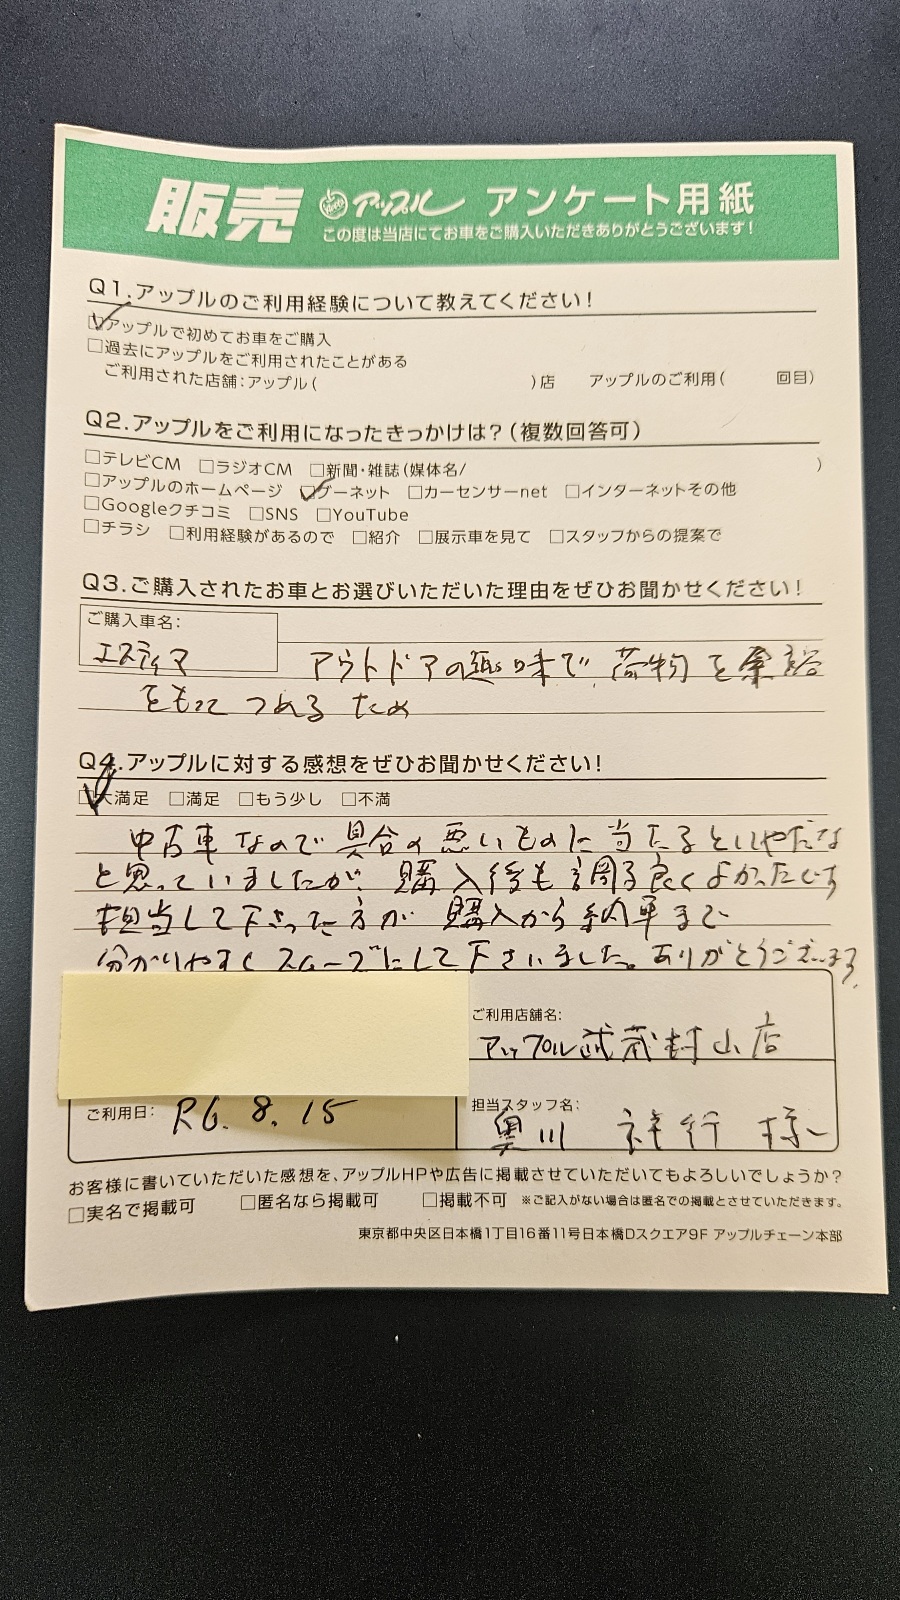 販売 アップル アンケート用紙
この度は当店にてお車をご購入いただきありがとうございます!
Q1.アップルのご利用経験について教えてください!
☑アップルで初めてお車をご購入
□過去にアップルをご利用されたことがある
ご利用された店舗:アップル( )店 アップルのご利用( 回目)
Q2.アップルをご利用になったきっかけは?(複数回答可)
□テレビCM □ラジオCM □新聞・雑誌(媒体名/ )
□アップルのホームページ ☑グーネット □カーセンサーnet □インターネットその他
□Googleクチコミ □SNS □YouTube
□チラシ □利用経験があるので □紹介 □展示車を見て □スタッフからの提案で
Q3.ご購入されたお車とお選びいただいた理由をぜひお聞かせください!
ご購入車名:
エスティマ アウトドアの趣味で荷物を余裕
をもってつめるため
Q4.アップルに対する感想をぜひお聞かせください!
☑大満足 □満足 □もう少し □不満
中古車なので具合の悪いものに当たるといやだな
と思っていましたが、購入後も調子良くよかったです
担当して下さった方が購入から納車まで
分かりやすくスムーズにして下さいました。ありがとうございます。
ご利用店舗名:
アップル武蔵村山店
ご利用日: R6.8.15
担当スタッフ名:
奥川 祥行 様
お客様に書いていただいた感想を、アップルHPや広告に掲載させていただいてもよろしいでしょうか?
□実名で掲載可 □匿名なら掲載可 □掲載不可 ※ご記入がない場合は匿名での掲載とさせていただきます。
東京都中央区日本橋1丁目16番11号日本橋Dスクエア9F アップルチェーン本部